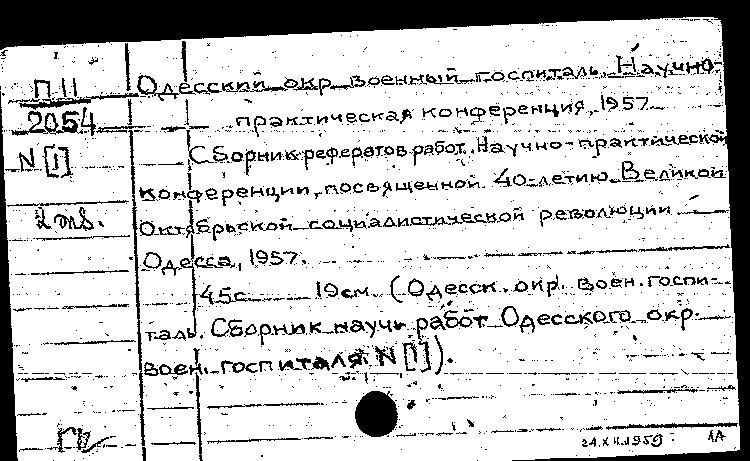 П 11
2054
N [1]
2 экз.
Одесский окр. военный госпиталь. Научно-
практическая конференция, 1957
Сборник рефератов работ. Научно-практической
конференции, посвященной 40-летию Великой
Октябрьской социалистической революции
Одесса, 1957.
45с 19см (Одесск. окр. воен. госпи-
таль. Сборник научн работ Одесского окр.
воен. госпиталя N [1]).
21.XII.1959 1А